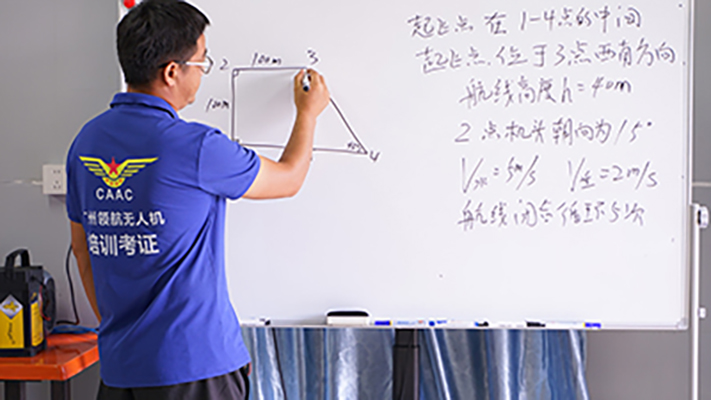 起飞点 在 1-4点的中间
起飞点 位于3点西南方向
航线高度h=40m
2 点机头朝向为15°
V水=5m/s V垂=2m/s
航线闭合循环5次
2 100m 3
100m
45°
4
CAAC
广州领航无人机
培训考证